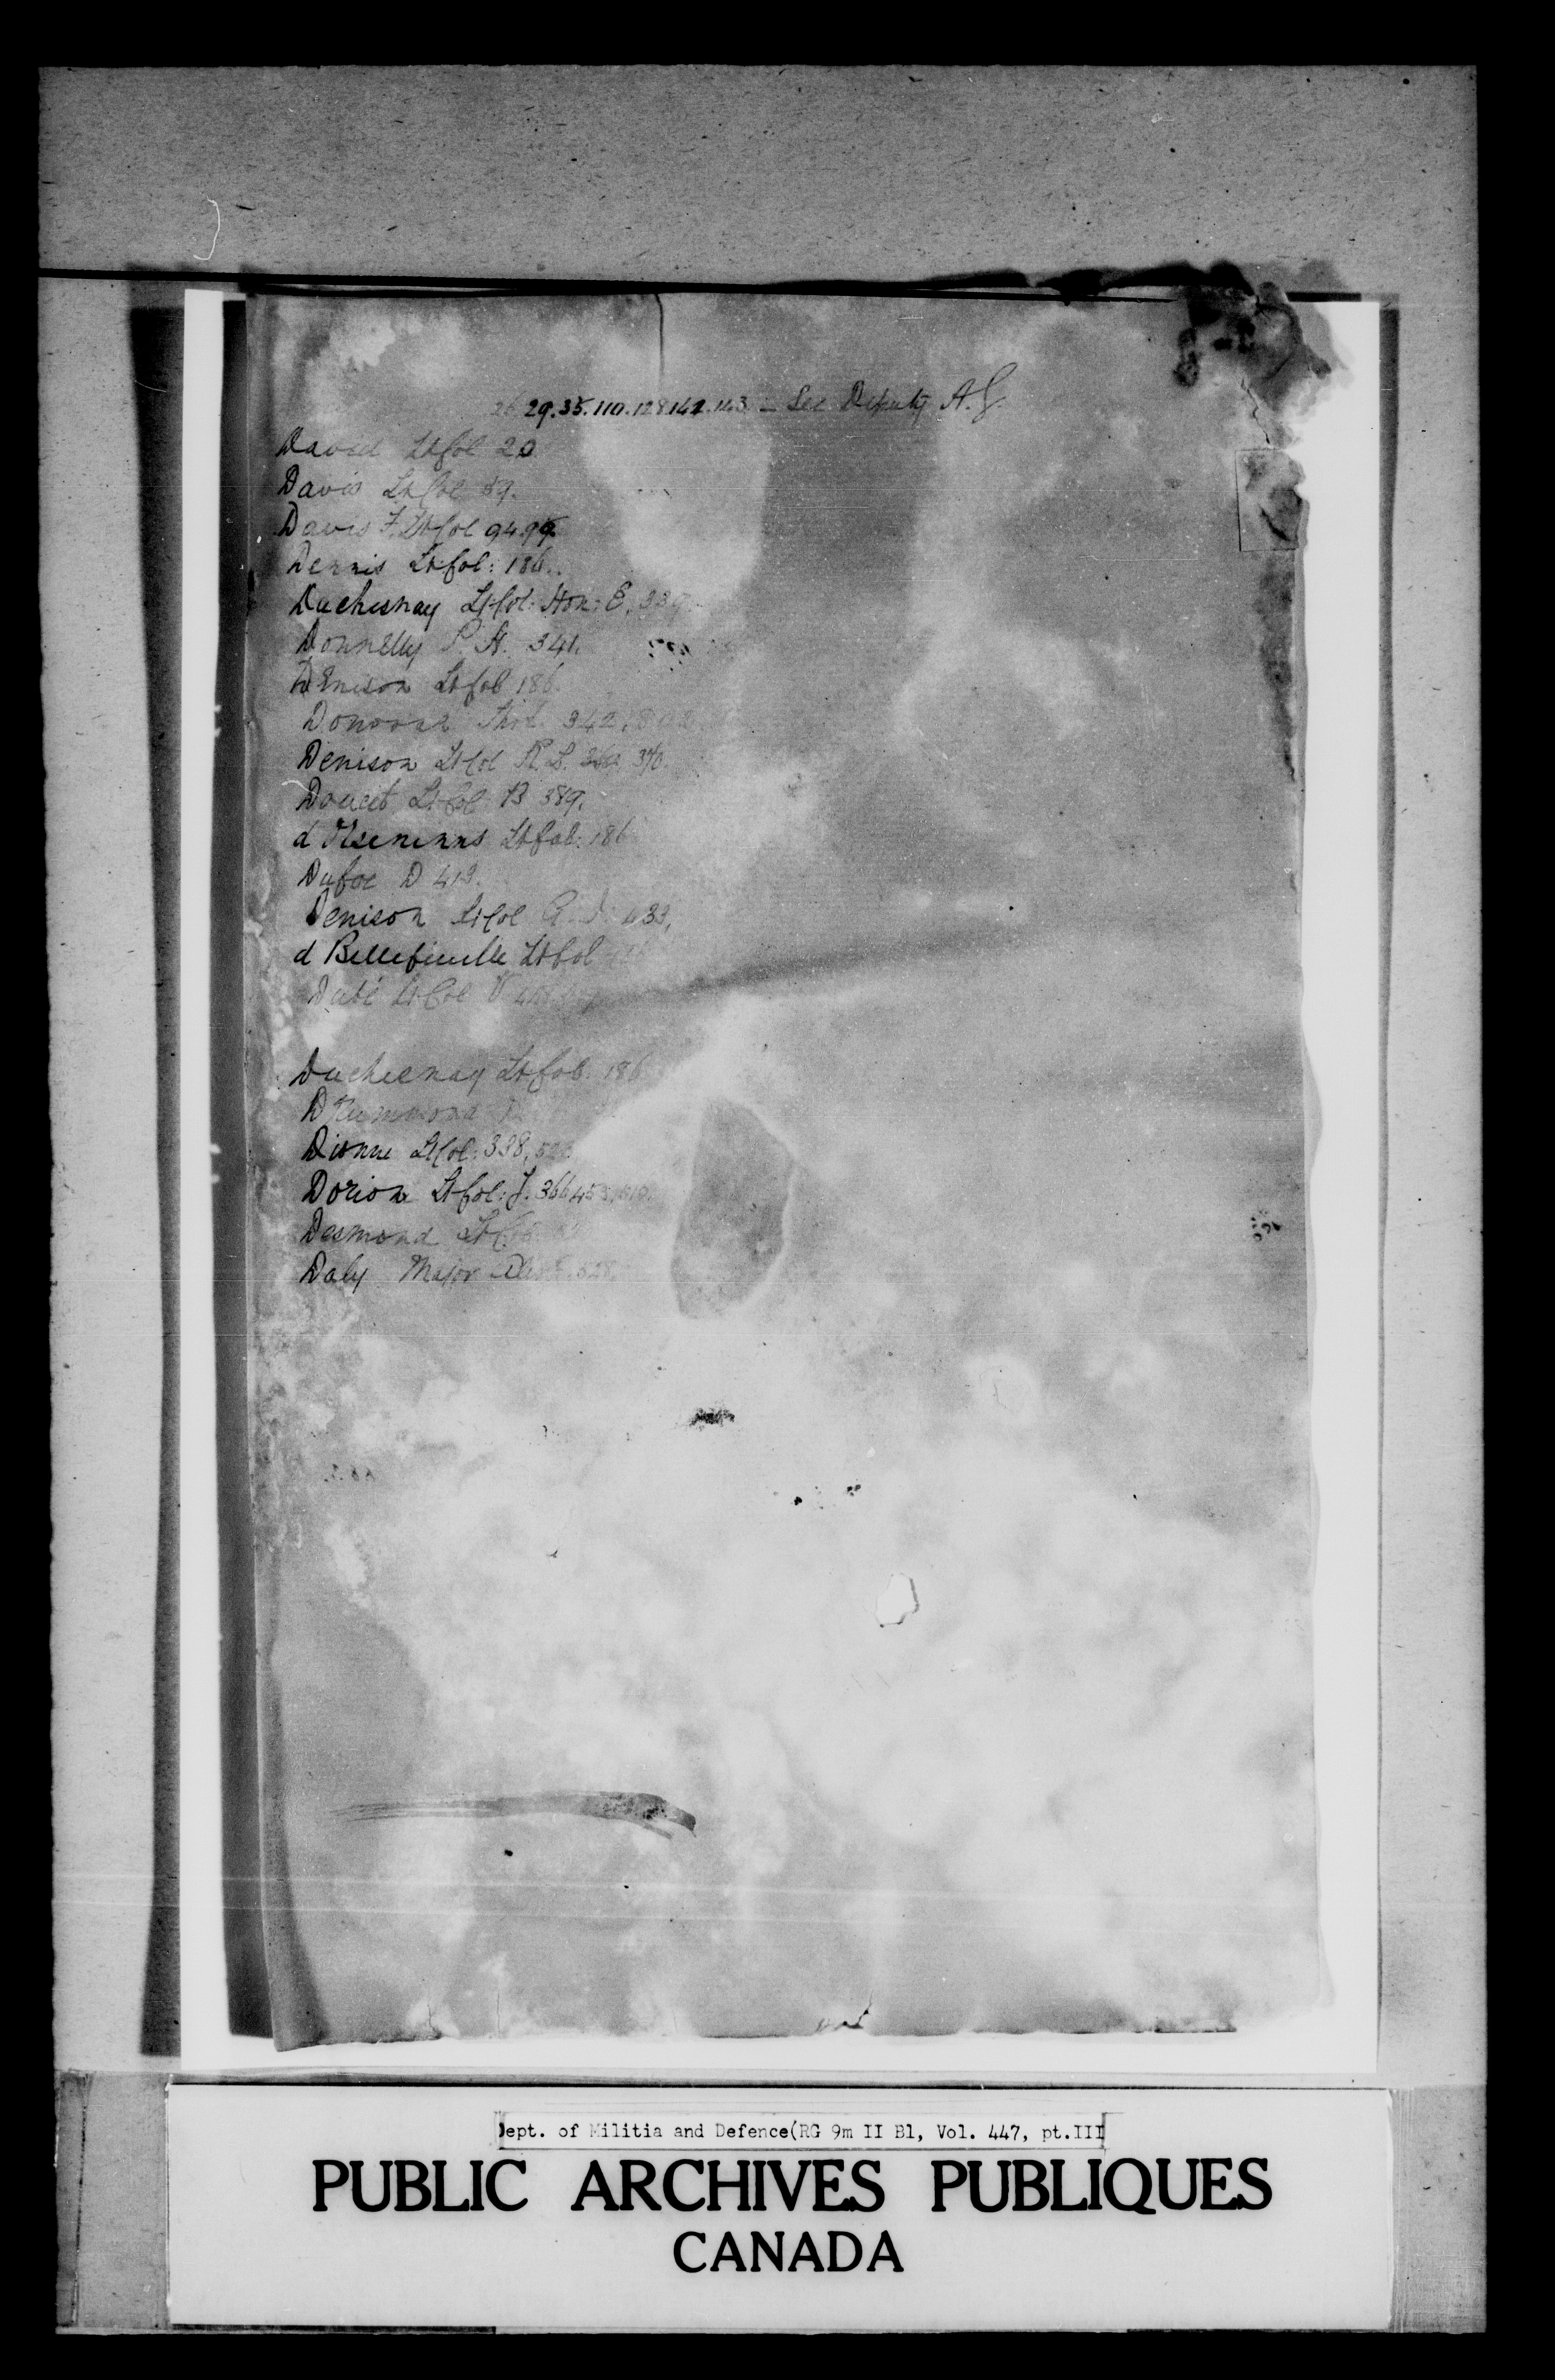 26.29.35.110.128.142.143 — See Deputy A.G.
David Lt Col 20
Davis Lt Col 89.
Davis F. Lt Col 94.95.
Dennis Lt Col: 186.
Duchesnay Lt Col: Hon: E. 339
Donnelly P. H. 341.
Denison Lt Col 186.
Donovan 342,
Denison Lt Col R. L. 370.
Doucet Lt Col B 389.
d'Orsonnens Lt Col: 186
Dufoe D 413.
Denison Lt Col 433,
d Bellefeuille Lt Col
Dubé Lt Col V
Duchesnay Lt Col. 186
Drummond
Dionne Lt Col: 338,
Dorion Lt Col: J. 366
Desmond Lt Col
Daly Major
Dept. of Militia and Defence(RG 9m II B1, Vol. 447, pt.III
PUBLIC ARCHIVES PUBLIQUES
CANADA